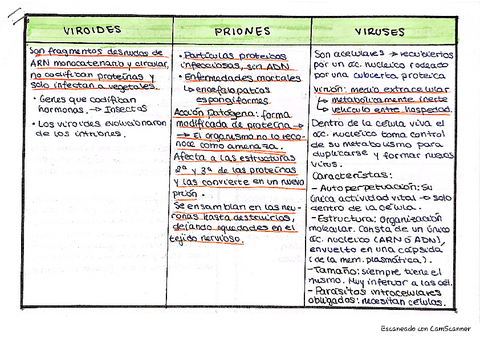 VIROIDES
Son fragmentos desnudos de
ARN monocatenario y circular,
no codifican proteínas y
solo infectan a vegetales.
• Genes que codifican
hormonas → Insectos
• Los viroides evolucionaron
de los intrones.
PRIONES
• Partículas proteicas
infecciosas, sin ADN
• Enfermedades mortales
↳ encefalopatías
espongiformes
Acción patógena: forma
modificada de proteína →
→ El organismo no la reco-
noce como amenaza.
Afecta a las estructuras
2ª y 3ª de las proteínas
y las convierte en un nuevo
prión.
Se ensamblan en las neu-
ronas hasta destruirlas,
dejando oquedades en el
tejido nervioso.
VIRUSES
Son acelulares → recubiertos
por un ác. nucleico rodeado
por una cubierta proteica
Virión: medio extracelular
↳ metabólicamente inerte
↳ vehículo entre hospedad.
Dentro de la célula viva el
ác. nucleico toma control
de su metabolismo para
duplicarse y formar nuevos
virus.
Características:
- Autoperpetuación: Su
única actividad vital → solo
dentro de la célula.
- Estructura: Organización
molecular. Consta de un único
ác. nucleico (ARN ó ADN),
envuelto en una cápsida
(de la mem. plasmática).
- Tamaño: siempre tiene el
mismo. Muy inferior a las cél.
- Parásitos intracelulares
obligados: necesitan células.
Escaneado con CamScanner